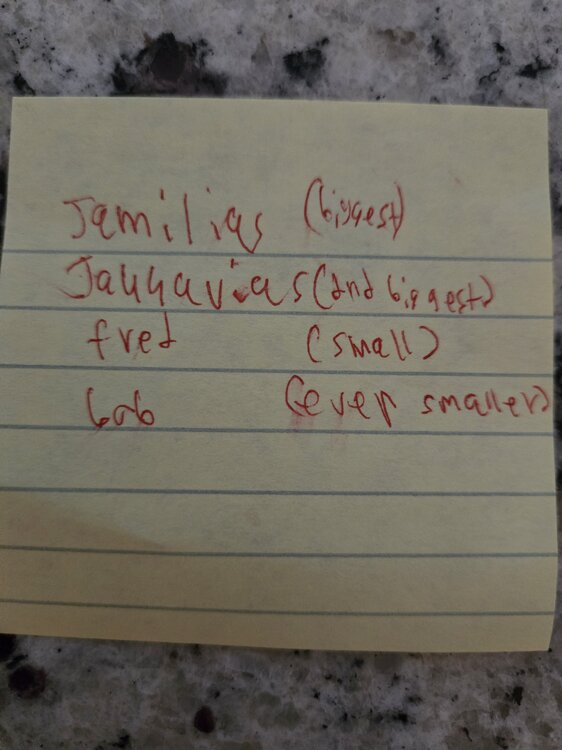 Jamilias (biggest)
Jahhavias (2nd biggest)
fred (small)
bob (even smaller)